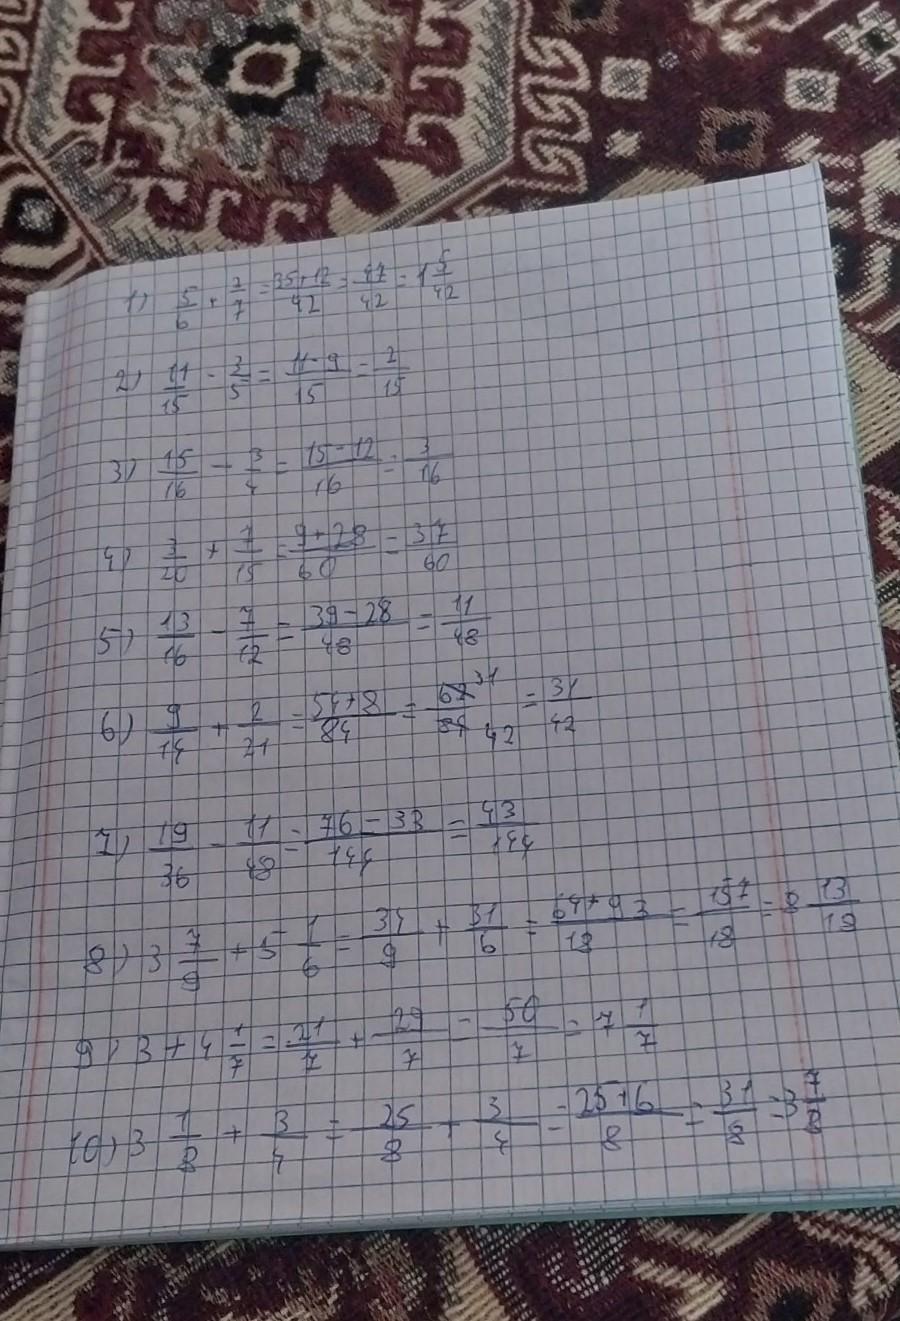 1) 5/6 + 2/7 = (35+12)/42 = 47/42 = 1 5/42
2) 11/15 - 3/5 = (11-9)/15 = 2/15
3) 15/16 - 3/4 = (15-12)/16 = 3/16
4) 3/20 + 7/15 = (9+28)/60 = 37/60
5) 13/16 - 7/12 = (39-28)/48 = 11/48
6) 9/14 + 2/21 = (54+8)/84 = 62 31/84 42 = 31/42
7) 19/36 - 11/48 = (76-33)/144 = 43/144
8) 3 7/9 + 5 1/6 = 34/9 + 31/6 = (64+93)/18 = 157/18 = 8 13/18
9) 3 + 4 1/7 = 21/7 + 29/7 = 50/7 = 7 1/7
10) 3 1/8 + 3/4 = 25/8 + 3/4 = (25+6)/8 = 31/8 = 3 7/8